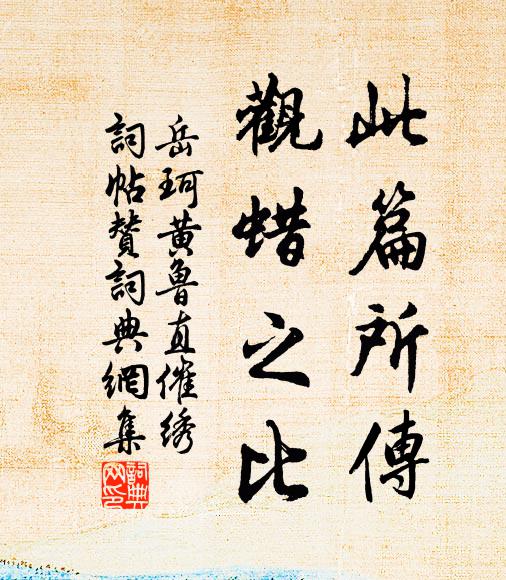 此篇所傳
觀蜡之比
岳珂黃魯直催綉
詞帖贊詞典網集